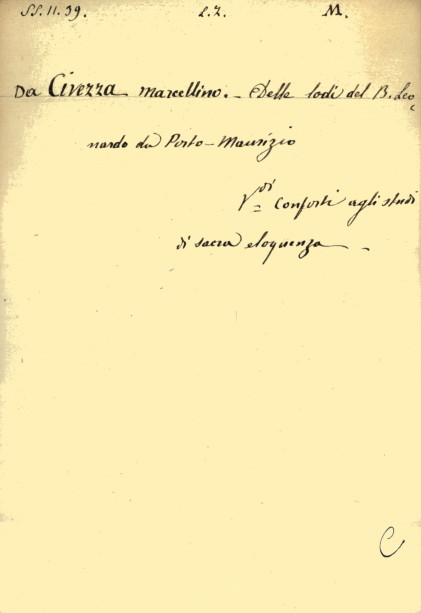 SS. 11. 39. L. Z. M.
Da Civezza Marcellino. - Delle lodi del B. Leo
nardo da Porto-Maurizio
V.di Conforti agli studi
di sacra eloquenza -
C